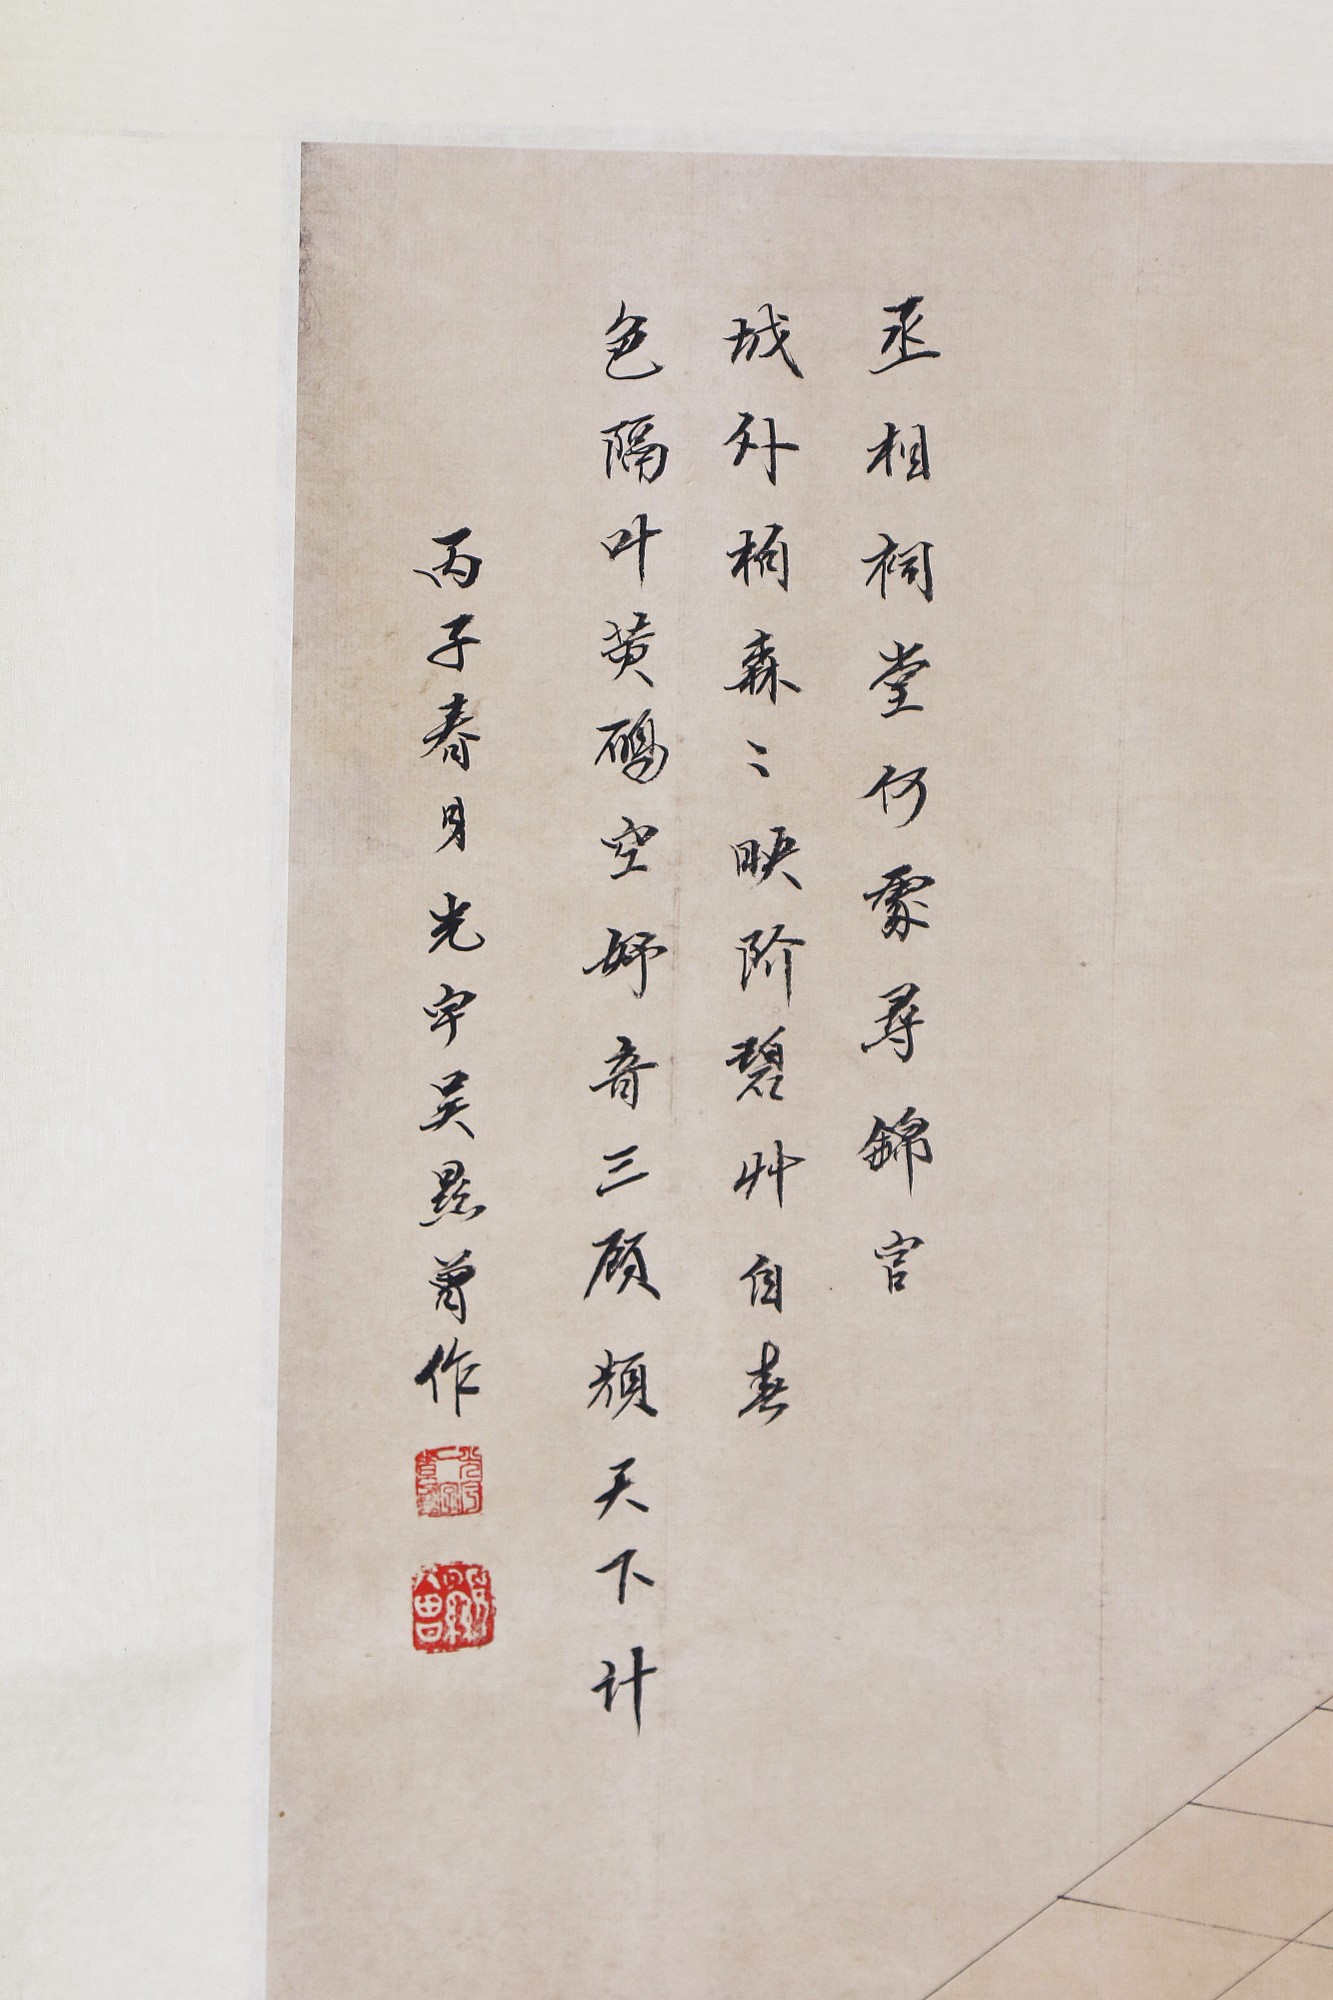 丞相祠堂何處尋錦官
城外柏森〻映阶碧艸自春
色隔叶黄鹂空好音三顾频天下计
丙子春月光宇吴㬎曾作